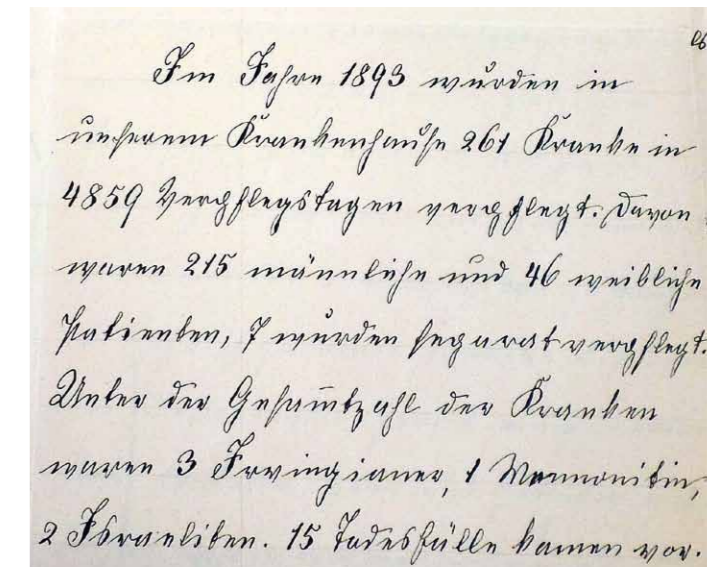 Im Jahre 1893 wurden in
unserem Krankenhause 261 Kranke in
4859 Verpflegstagen verpflegt. Davon
waren 215 männliche und 46 weibliche
Patienten, 7 wurden separat verpflegt.
Unter der Gesam̅tzahl der Kranken
waren 3 Irvingianer, 1 Mennonitin,
2 Israeliten. 15 Todesfälle kamen vor.